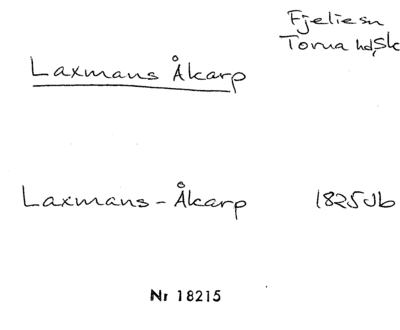 Fjelie sn
Torna hd, Sk
Laxmans Åkarp
Laxmans-Åkarp 1825 Jb
Nr 18215